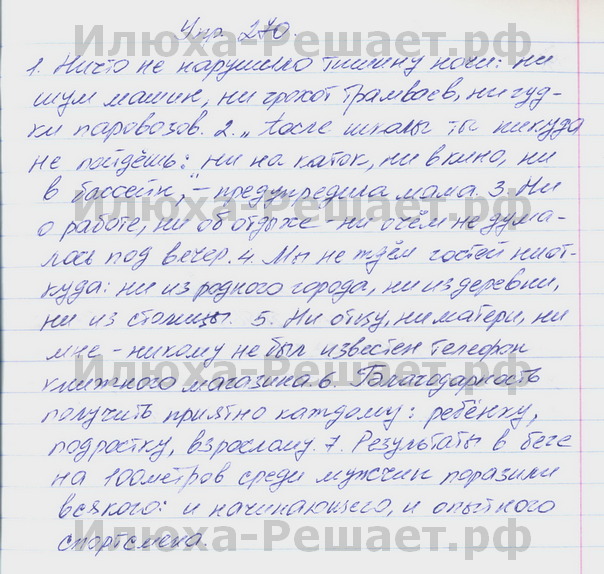 Упр. 270.
1. Ничто не нарушело тишину ночи: ни
шум машин, ни грохот трамваев, ни гуд-
ки паровозов. 2. „После школы ты никуда
не пойдёшь: ни на каток, ни в кино, ни
в бассейн," – предупредила мама. 3. Ни
о работе, ни об отдыхе - ни о чём не дума-
лось под вечер. 4. Мы не ждём гостей ниот-
куда: ни из родного города, ни из деревни,
ни из столицы. 5. Ни отцу, ни матери, ни
мне - никому не был известен телефон
книжного магазина. 6. Благодарность
получить приятно каждому: ребёнку,
подростку, взрослому. 7. Результаты в беге
на 100 метров среди мужчин поразили
всякого: и начинающего, и опытного
спортсмена.
Илюха-Решает.рф
Илюха-Решает.рф
Илюха-Решает.рф
Илюха-Решает.рф